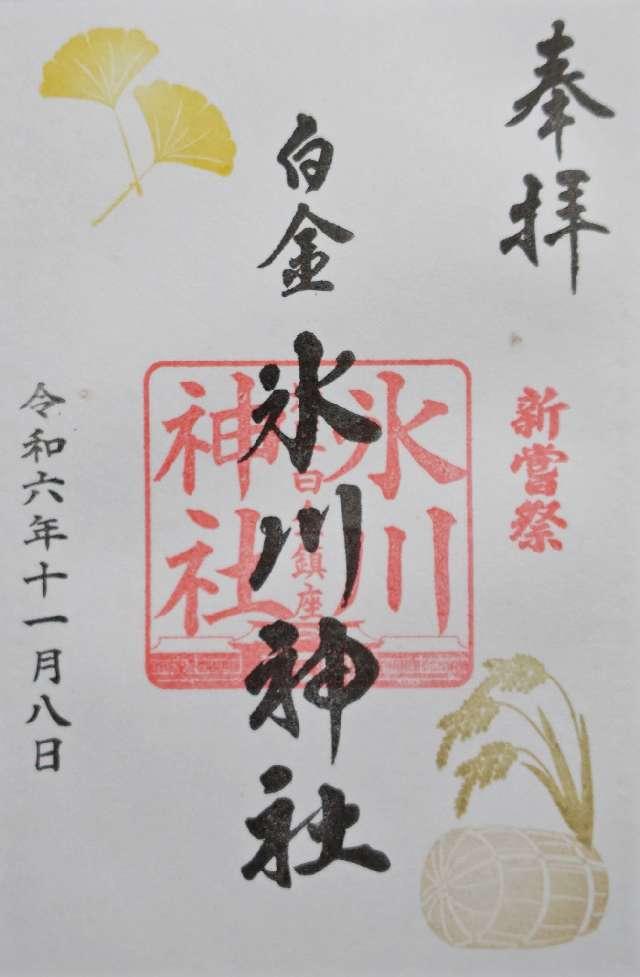 奉拝
新嘗祭
白金 氷川神社
氷川
神社
鎮座
令和六年十一月八日